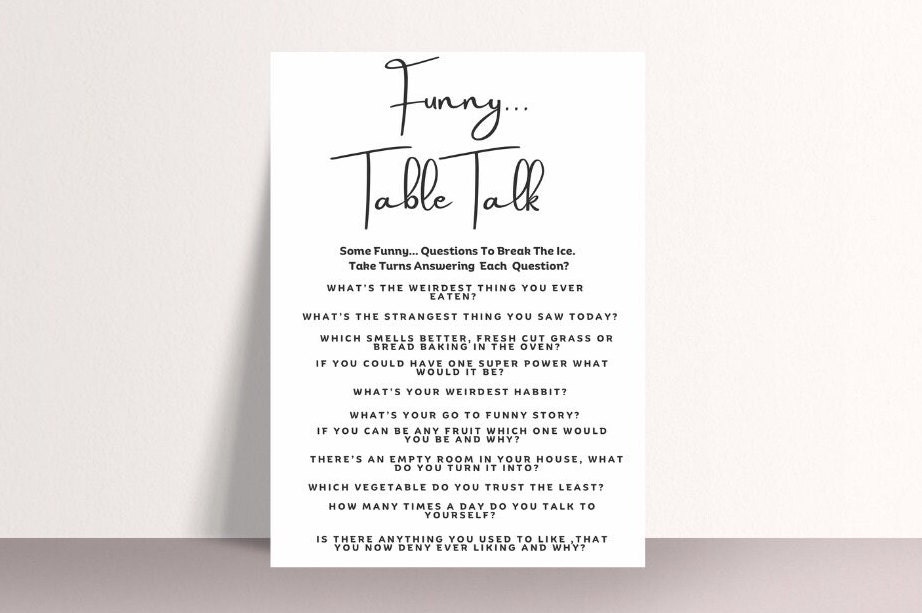 Funny...
Table Talk
Some Funny... Questions To Break The Ice.
Take Turns Answering Each Question?
WHAT'S THE WEIRDEST THING YOU EVER
EATEN?
WHAT'S THE STRANGEST THING YOU SAW TODAY?
WHICH SMELLS BETTER, FRESH CUT GRASS OR
BREAD BAKING IN THE OVEN?
IF YOU COULD HAVE ONE SUPER POWER WHAT
WOULD IT BE?
WHAT'S YOUR WEIRDEST HABBIT?
WHAT'S YOUR GO TO FUNNY STORY?
IF YOU CAN BE ANY FRUIT WHICH ONE WOULD
YOU BE AND WHY?
THERE'S AN EMPTY ROOM IN YOUR HOUSE, WHAT
DO YOU TURN IT INTO?
WHICH VEGETABLE DO YOU TRUST THE LEAST?
HOW MANY TIMES A DAY DO YOU TALK TO
YOURSELF?
IS THERE ANYTHING YOU USED TO LIKE ,THAT
YOU NOW DENY EVER LIKING AND WHY?